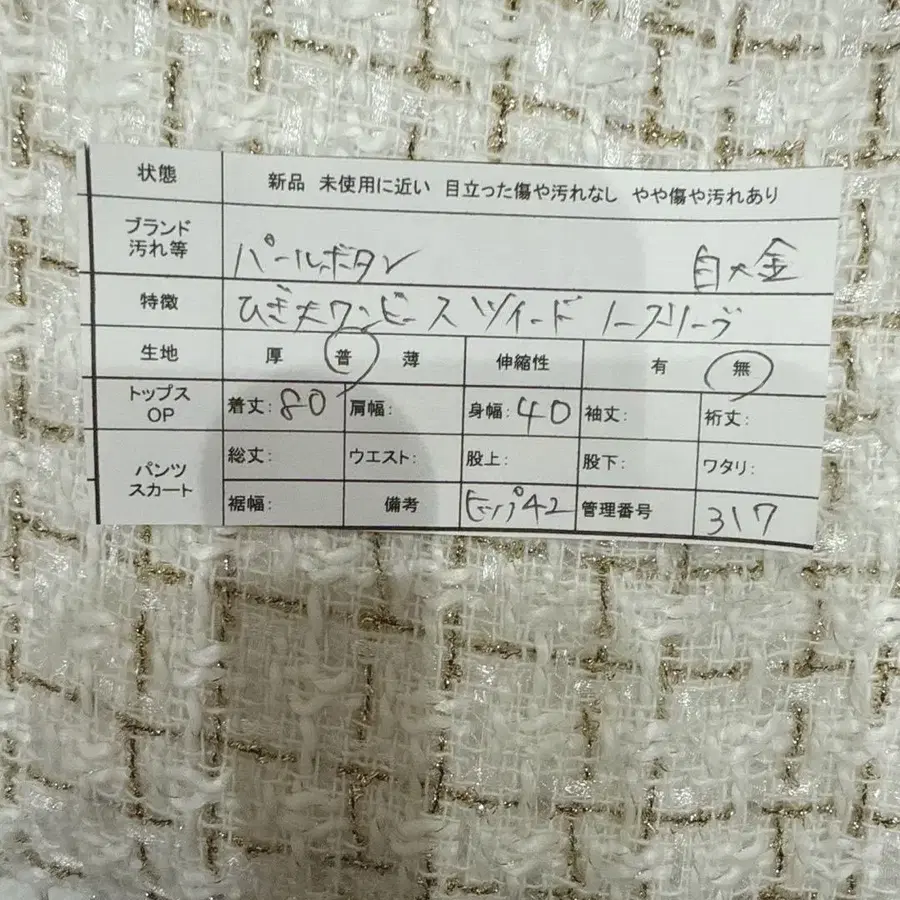 状態 新品 未使用に近い 目立った傷や汚れなし やや傷や汚れあり
ブランド
汚れ等 パールボタン 白×金
特徴 ひざ丈ワンピース ツイード ノースリーブ
生地 厚 普 薄 伸縮性 有 無
トップス
OP 着丈: 80 肩幅: 身幅: 40 袖丈: 裄丈:
パンツ
スカート 総丈: ウエスト: 股上: 股下: ワタリ:
裾幅: 備考 ヒップ42 管理番号 317